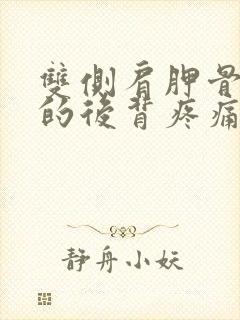 雙側肩胛骨
的後背疼痛
静舟小妖